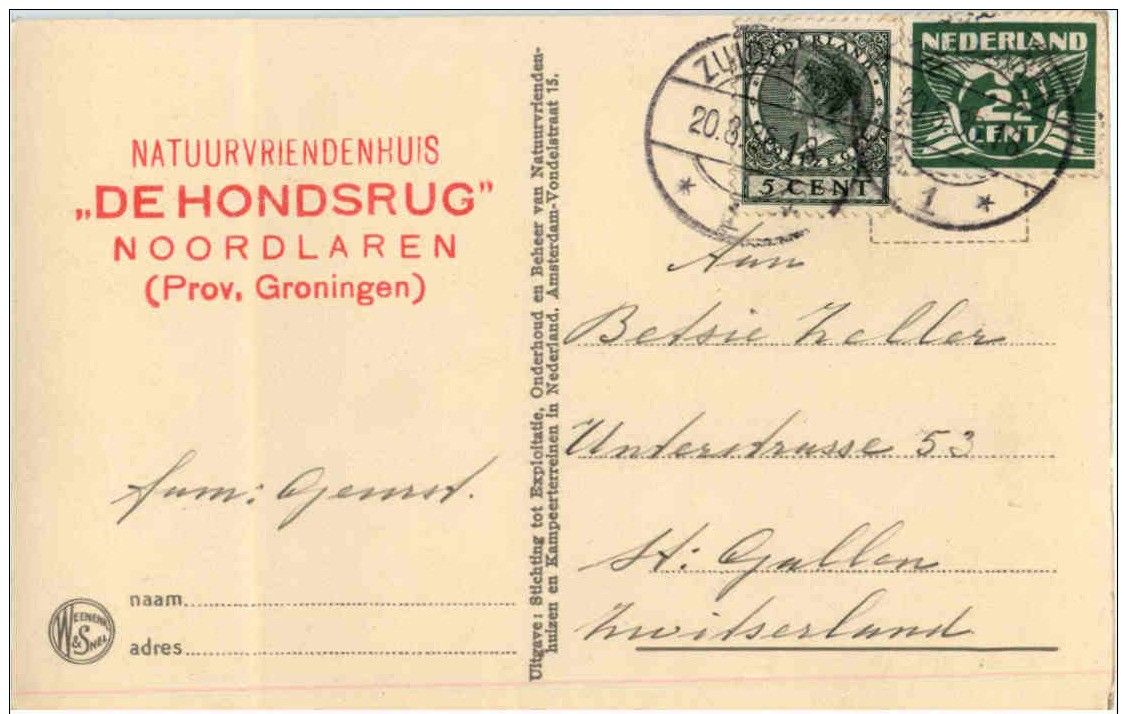 NATUURVRIENDENHUIS
„DE HONDSRUG”
NOORDLAREN
(Prov, Groningen)
naam
adres
WEENENK & SNEL
Uitgave: Stichting tot Exploitatie, Onderhoud en Beheer van Natuurvrienden-
huizen en Kampeerterreinen in Nederland, Amsterdam-Vondelstraat 15.
NEDERLAND
5 CENT
NEDERLAND
2½
CENT
1
Aan
Betsie Zeller
Unterstrasse 53
St: Gallen
Zwitserland